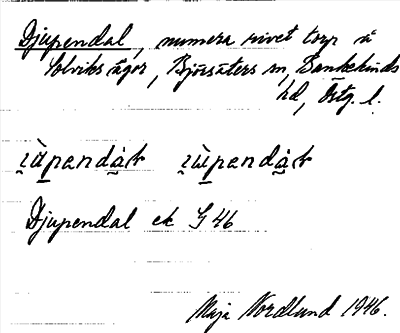 Djupendal, numera rivet torp å
Solviks ägor, Björsäters sn, Bankekinds
hd, Östg. l.
Djupendal ek G 46
Maja Nordlund 1946.